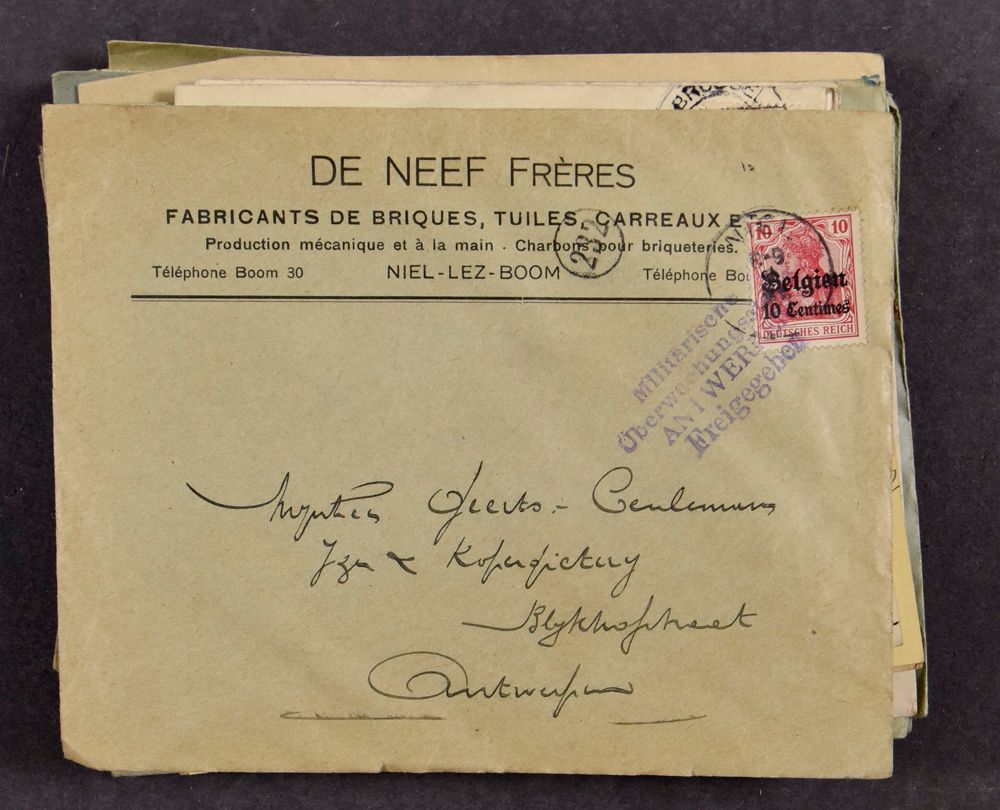 BRUX
DE NEEF FRÈRES
FABRICANTS DE BRIQUES, TUILES, CARREAUX ET
Production mécanique et à la main - Charbons pour briqueteries.
Téléphone Boom 30 NIEL-LEZ-BOOM Téléphone Bo
282
10 10
Belgien
10 Centimes
DEUTSCHES REICH
Militärische
Überwachungss
ANTWER
Freigegeben
Geerts - Ceulemans
Yzer &
Blykhofstraat
Antwerpen